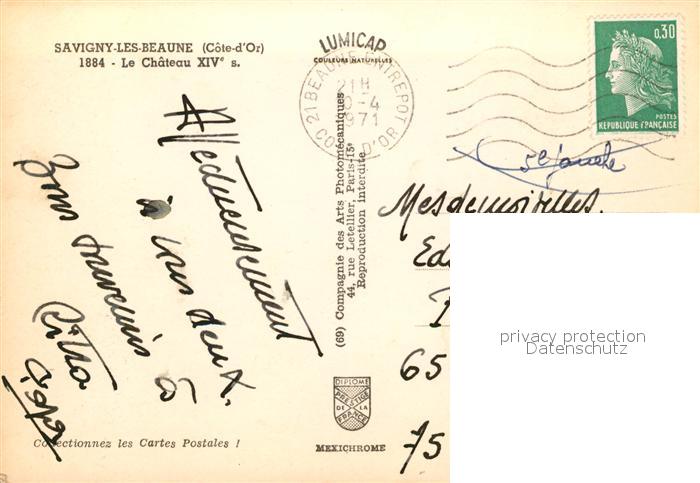 SAVIGNY-LES-BEAUNE (Côte-d'Or)
1884 - Le Château XIVe s.
LUMICAP
COULEURS NATURELLES
21 BEAUNE ENTREPOT
21 H
-4
1971
COTE D'OR
0,30
POSTES
REPUBLIQUE FRANÇAISE
Affectueusement
à tous deux.
Bons souvenirs à
(69) Compagnie des Arts Photomécaniques
44, rue Letellier, Paris-15e
Reproduction interdite
Mesdemoiselles
Ed
65
75
privacy protection
Datenschutz
DIPLOME
PRESTIGE
DE LA
FRANCE
MEXICHROME
Collectionnez les Cartes Postales !